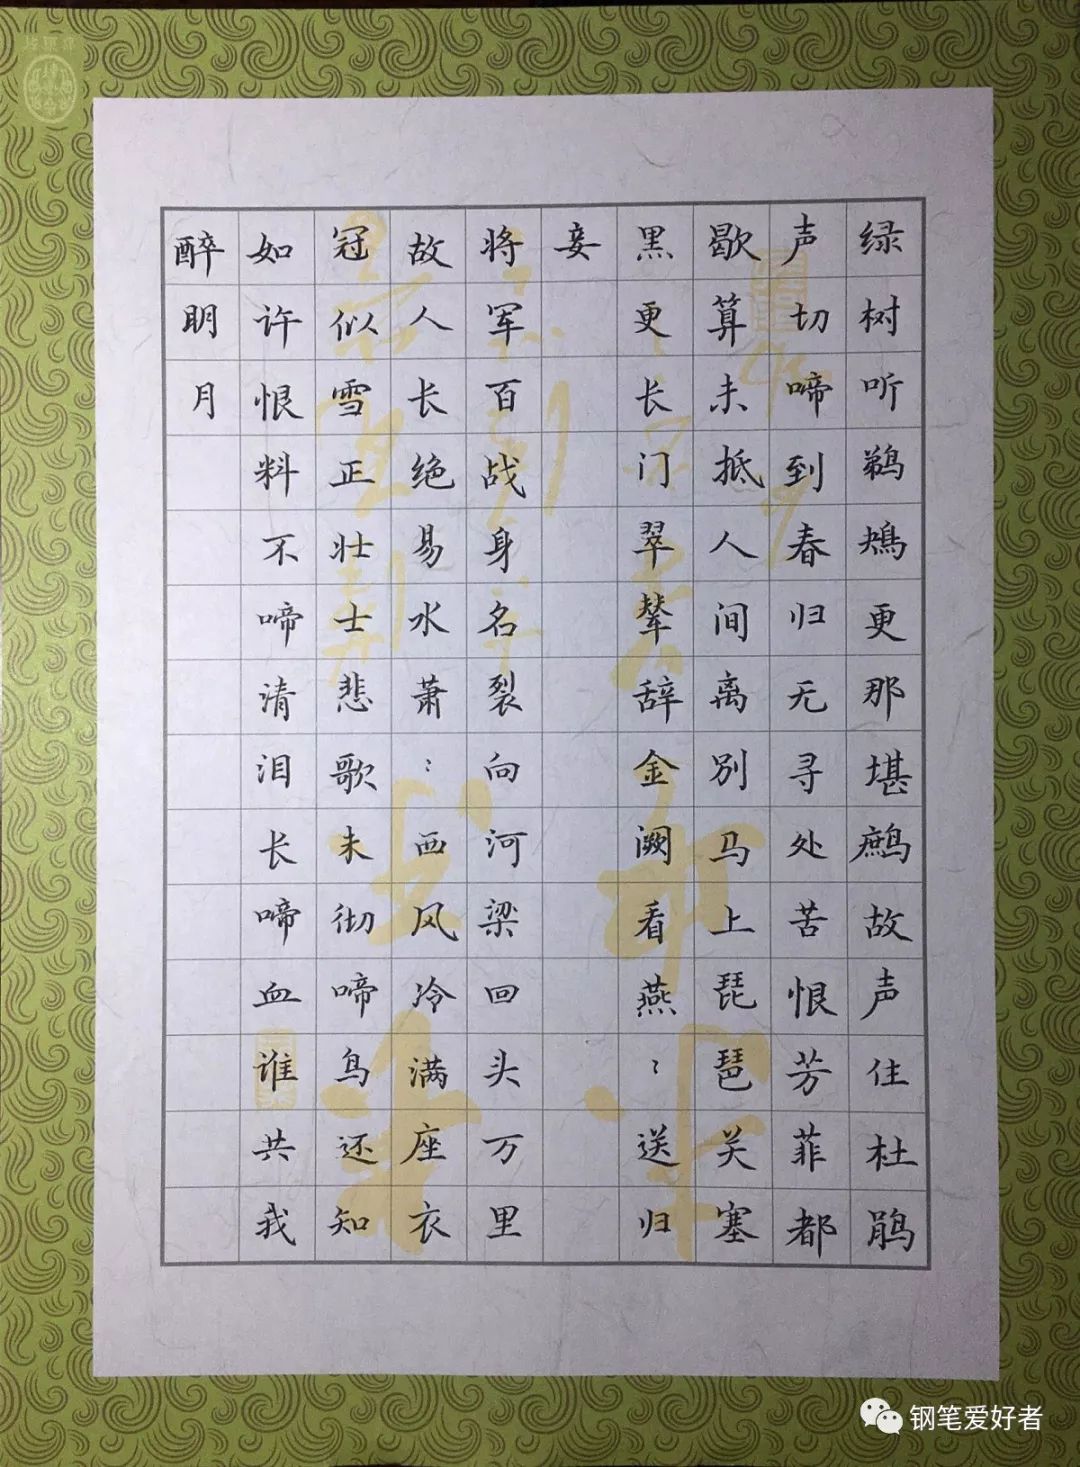 绿树听鹈鴂更那堪鹧故声住杜鹃
声切啼到春归无寻处苦恨芳菲都
歇算未抵人间离别马上琵琶关塞
黑更长门翠辇辞金阙看燕：送归
妾
将军百战身名裂向河梁回头万里
故人长绝易水萧：西风冷满座衣
冠似雪正壮士悲歌未彻啼鸟还知
如许恨料不啼清泪长啼血谁共我
醉明月
钢笔爱好者